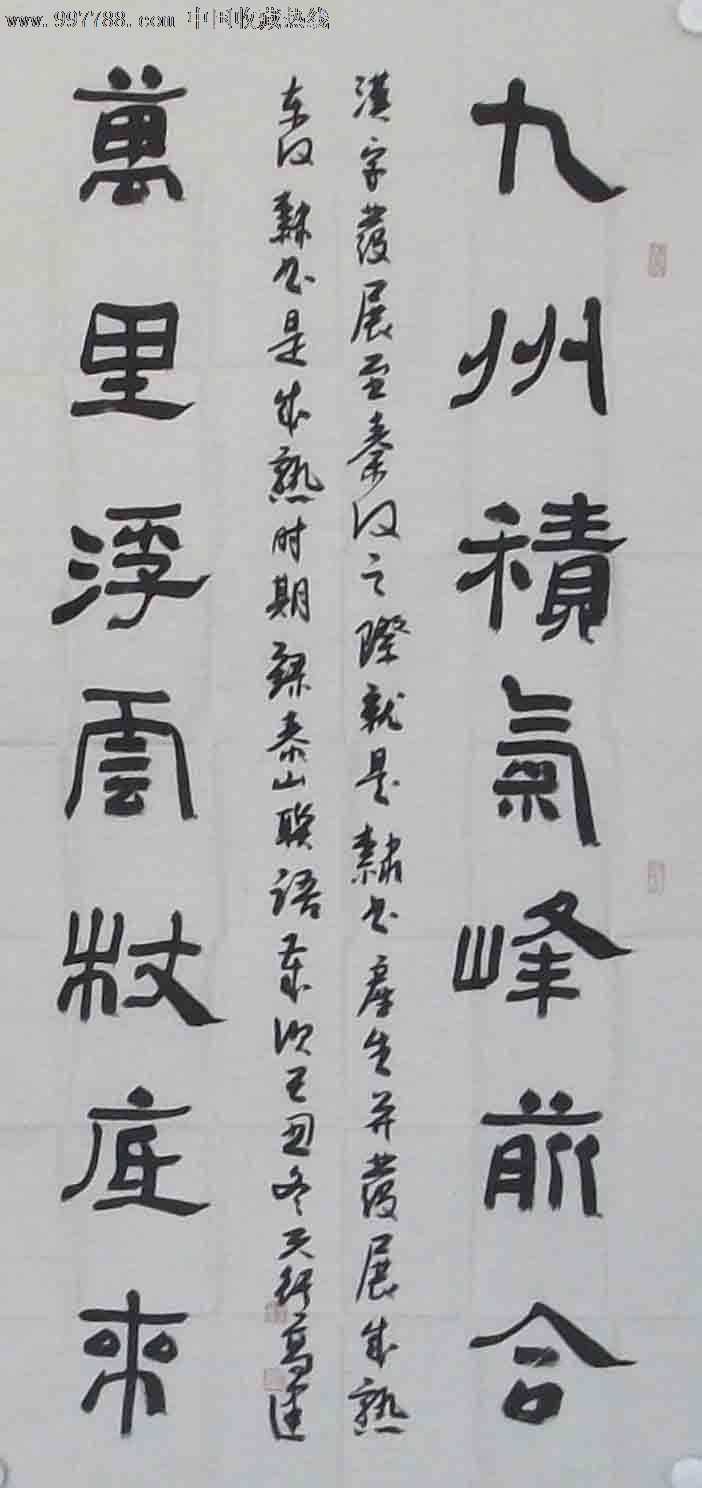 www.997788.com 中国收藏热线
九州積氣峰前合
漢字發展至秦汉之際就是隸书產生并發展成熟
东汉隸书是成熟时期録泰山聯語歲次己丑冬天行高建
萬里浮雲杖底來